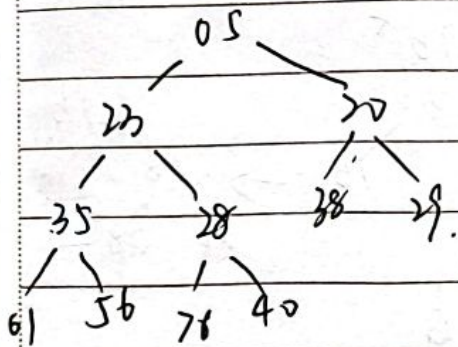 05
23 20
35 28 38 29.
61 56 78 40